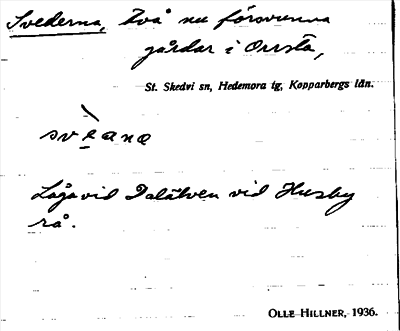 Svederna, två nu försvunna
gårdar i Orrsta,
St. Skedvi sn, Hedemora tg, Kopparbergs län.
svèana
Lågo vid Dalälven vid Husby
rå.
OLLE HILLNER, 1936.